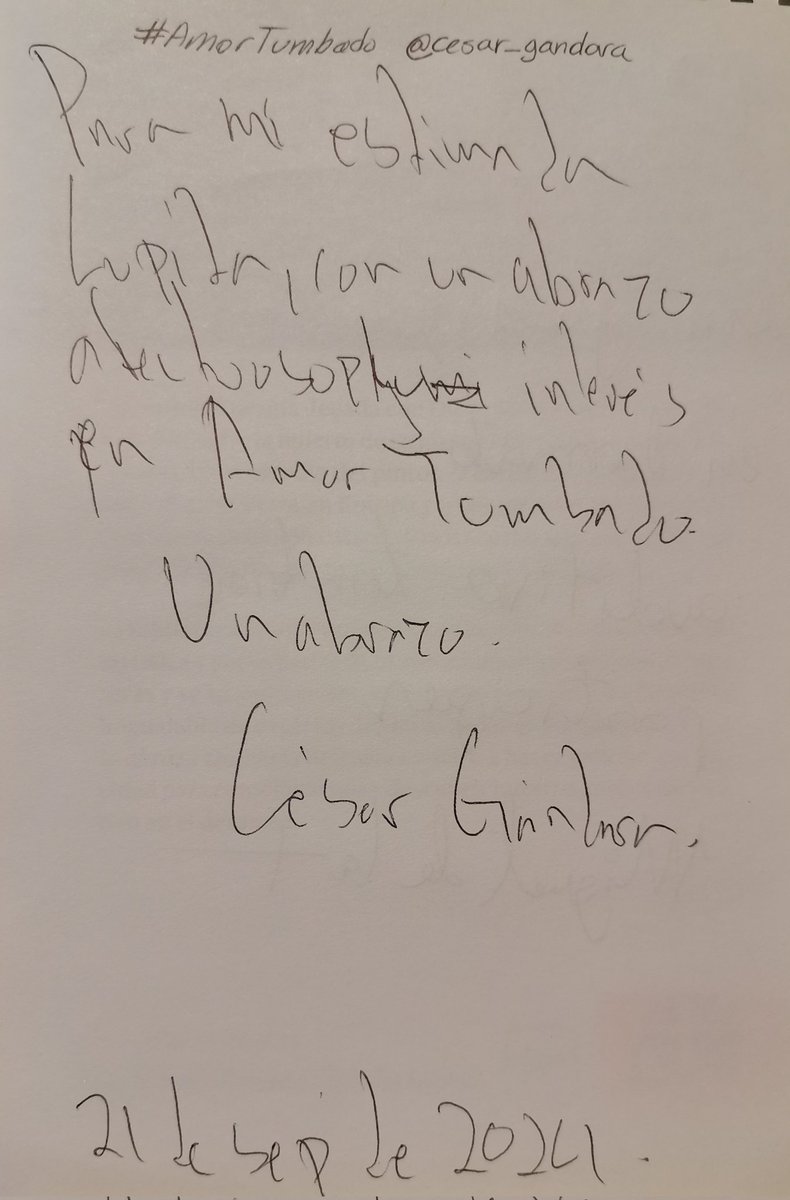 #AmorTumbado @cesar_gandara
Para mi estimada
Lupita, con un abrazo
afectuoso p interés
en Amor Tumbado.
Un abrazo.
César Gándara.
21 de sep de 2024.